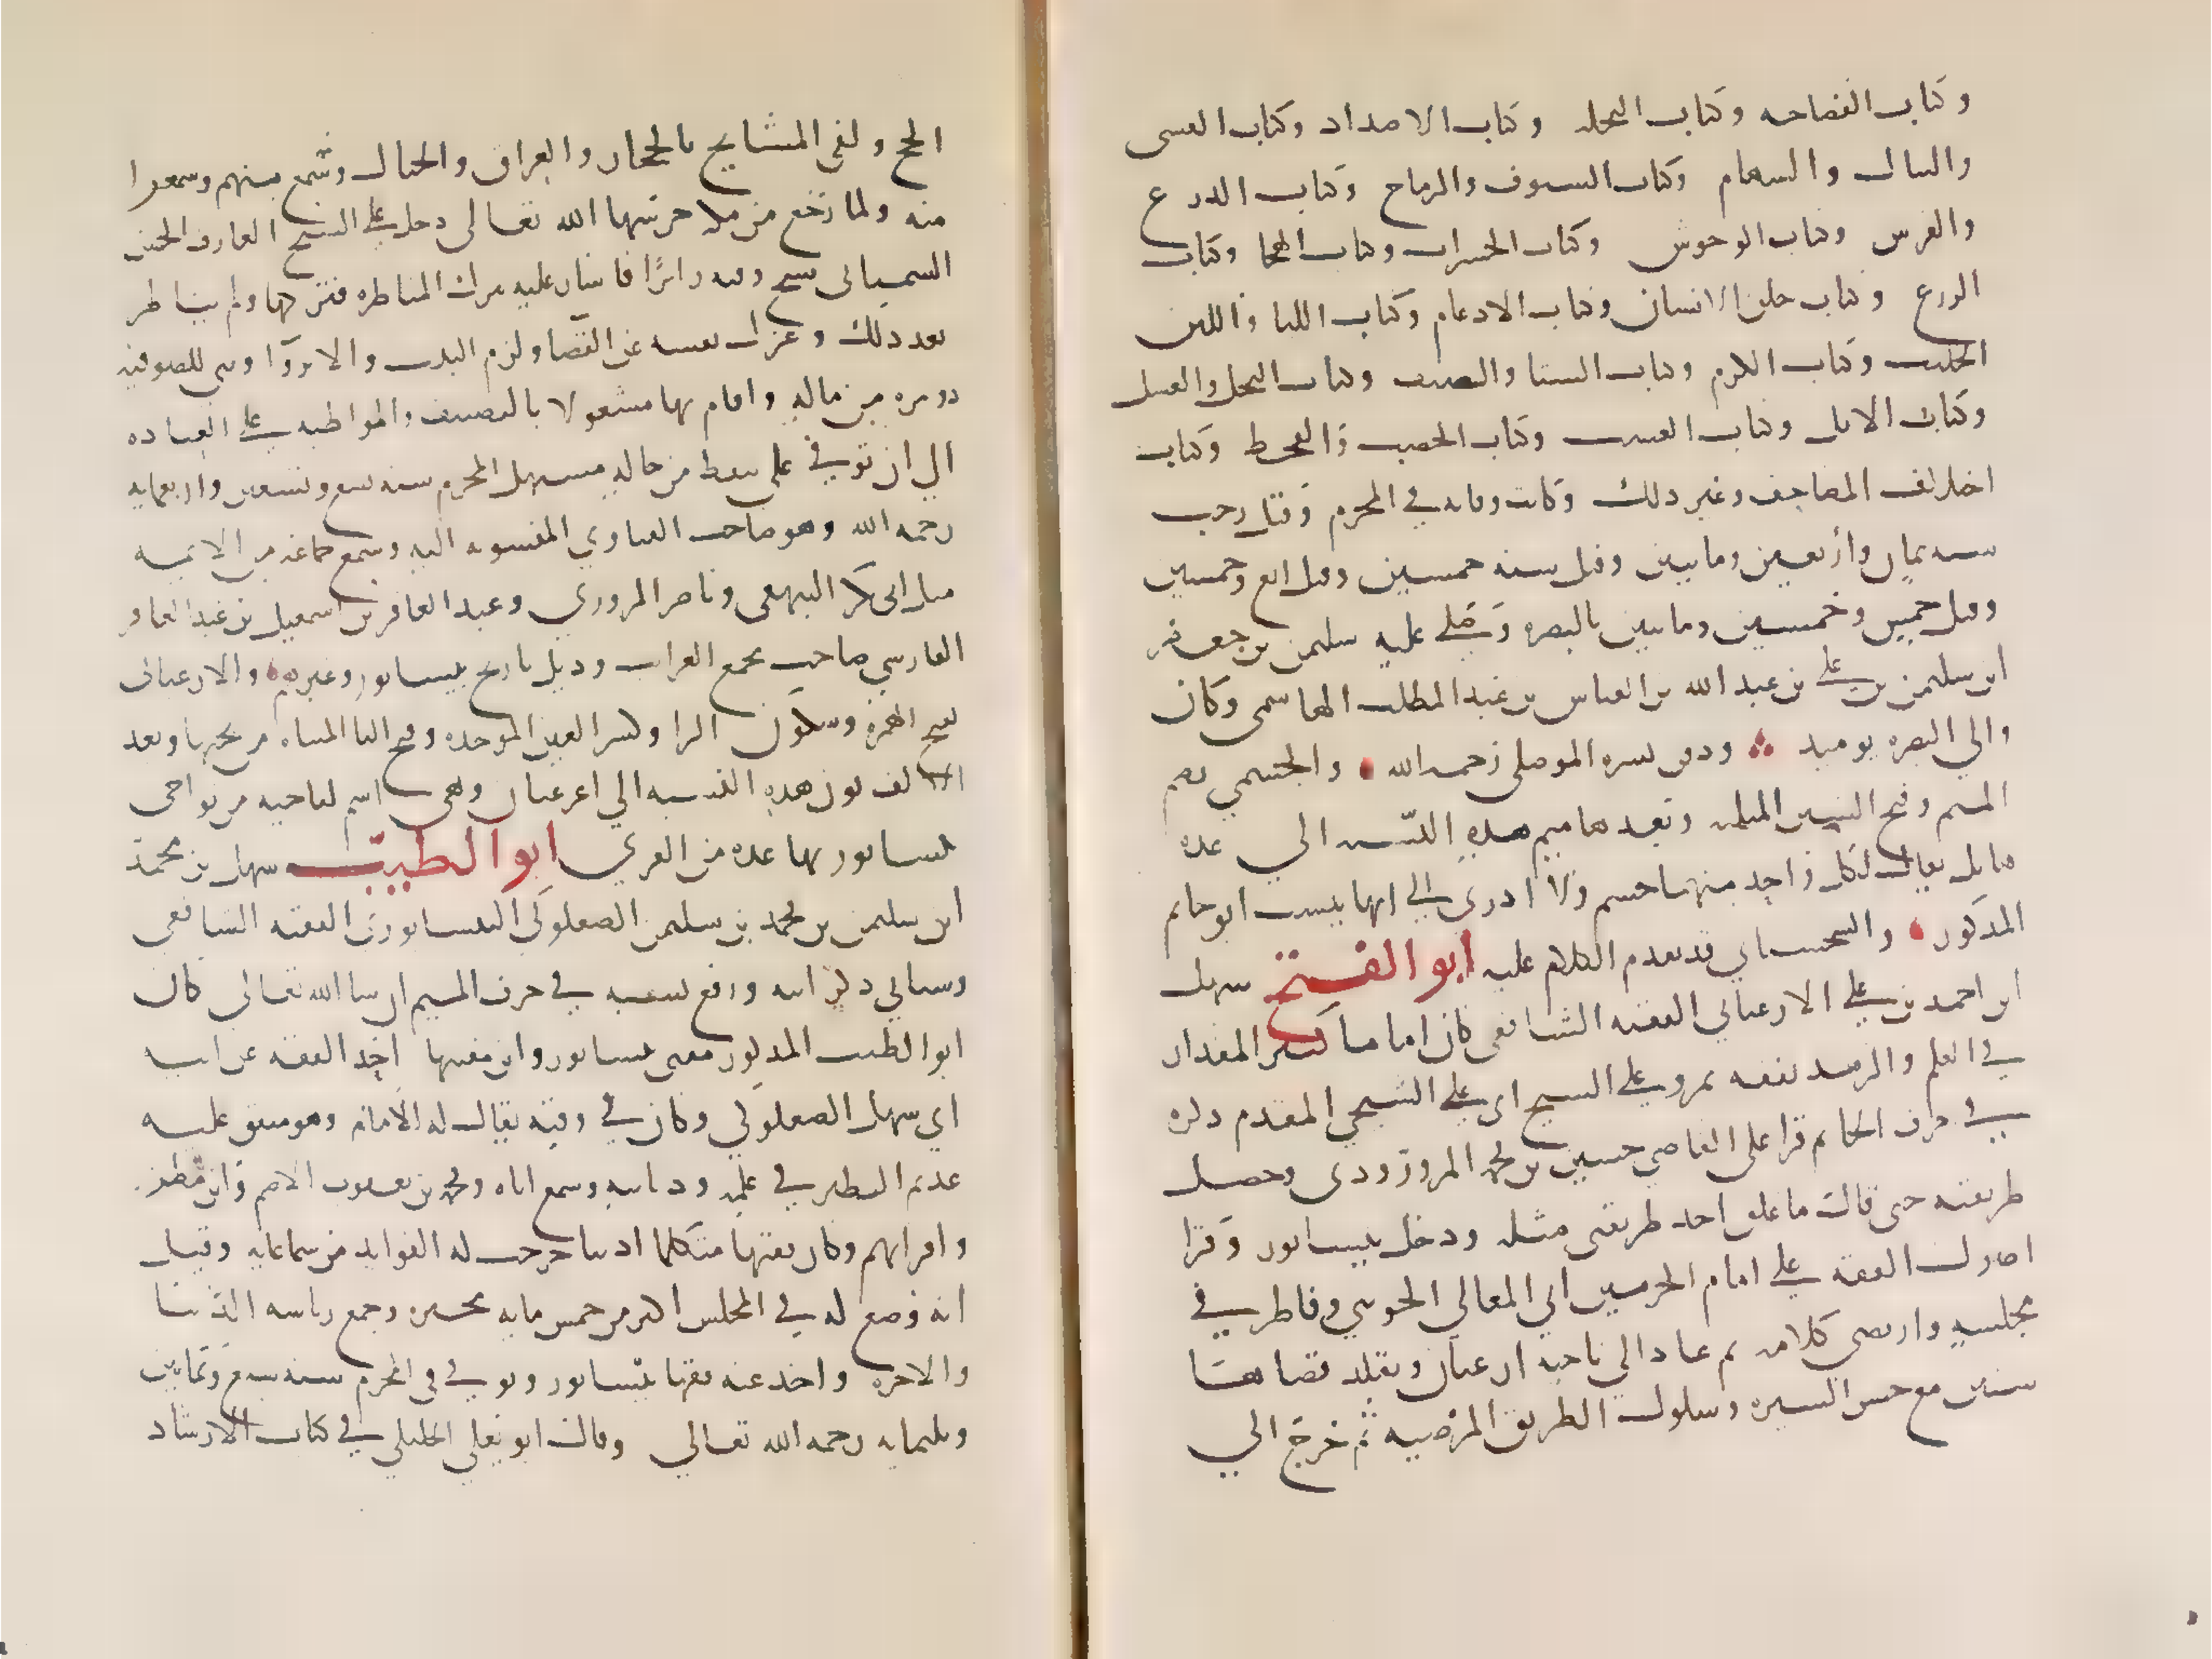 وكتاب الفصاحه وكتاب النخله وكتاب الاضداد وكتاب القسى
والنبال والسهام وكتاب السيوف والرماح وكتاب الدرع
والفرس وكتاب الوحوش وكتاب الحشرات وكتاب الهجا وكتاب
الزرع وكتاب خلق الانسان وكتاب الادغام وكتاب اللبا واللبن
الحليب وكتاب الكرم وكتاب الشتا والصيف وكتاب النحل والعسل
وكتاب الابل وكتاب العشب وكتاب الخصب والقحط وكتاب
اختلاف المصاحف وغير ذلك وكانت وفاته في المحرم وقيل رجب
سنه ثمان وأربعين ومايتين وقيل سنه خمسين وقيل اربع وخمسين
وقيل خمس وخمسين ومايتين بالبصره وصلى عليه سليمن بن جعفر
ابن سليمن بن علي بن عبد الله بن العباس بن عبد المطلب الهاشمى وكان
والي البصره يوميد ودفن بسره المصلى رحمه الله والجشمي بضم
الجيم وفتح الشين المثلثه وبعدها ميم هذه النسبه الي عده
قبايل يقال لكل واحد منها جشم ولا ادري الي ايها ينسب ابو حاتم
المذكور والسجستاني قد تقدم الكلام عليه ابو الفتح سهل
ابن احمد بن علي الارغياني الفقيه الشافعى كان اماما كبير المقدار
في العلم والزهد تفقه بمرو علي الشيخ ابي علي السنجي المقدم ذكره
في حرف الحا ثم قرا على القاضي حسين بن محمد المروزودى وحصل
طريقته حتى قال ما علق احد طريقتى مثله ودخل نيسابور وقرا
اصول الفقه علي امام الحرمين ابي المعالي الجويني وناظر في
مجلسه وارتضى كلامه ثم عاد الي ناحيه ارغيان وتقلد قضاها
سنين مع حسن السيره وسلوك الطريق المرضيه ثم خرج الي
الحج ولقى المشايخ بالحجاز والعراق والجبال وسمع منهم وسمعوا
منه ولما رجع من مكه حرسها الله تعالى دخل علي الشيخ العارف الحسن
السمنانى شيخ وقته زائرًا فاشار عليه بترك المناظره فتركها ولم يناظر
بعد ذلك وعزل نفسه عن القضا ولزم البيت والانزوا وبنى للصوفيه
دويره من ماله واقام بها مشغولا بالتصنيف والمواظبه علي العباده
الي ان توفي على تيقظ من حاله مستهل المحرم سنه تسع وتسعين واربعمايه
رحمه الله وهو صاحب الفتاوي المنسوبه اليه وسمع جماعه من الايمه
مثل ابى بكر البيهقى وناصر المروزي وعبد الغافر بن اسمعيل بن عبد الغافر
الفارسي صاحب مجمع الغرايب وذيل تاريخ نيسابور وغيرهم والارغيانى
بفتح الهمزه وسكون الرا وكسر الغين الموحده وفتح اليا المثناه من تحتها وبعد
الالف نون هذه النسبه الي ارغيان وهي اسم لناحيه من نواحى
نيسابور بها عده من القري ابو الطيب سهل بن محمد
ابن سليمن بن محمد بن سليمن الصعلوكي النيسابورى الفقيه الشافعى
وسياتي ذكر ابيه ورفع نسبه في حرف الميم ان شا الله تعالى كان
ابو الطيب المذكور مفتى نيسابور وابن مفتيها اخذ الفقه عن ابيه
ابي سهل الصعلوكي وكان في وقته يقال له الامام وهو متفق عليه
عديم النظير في علمه وديانته وسمع اباه ومحمد بن يعقوب الاصم وابن مطر
واقرانهم وكان فقيها متكلما اديبا خرجت له الفوايد من سماعاته وقيل
انه وضع له في المجلس اكثر من خمس مايه محبره وجمع رياسه الدنيا
والاخره واخذ عنه فقها نيسابور وتوفي في المحرم سنه سبع وثمانين
وثلثمايه رحمه الله تعالي وقال ابو يعلي الخليلي في كتاب الارشاد